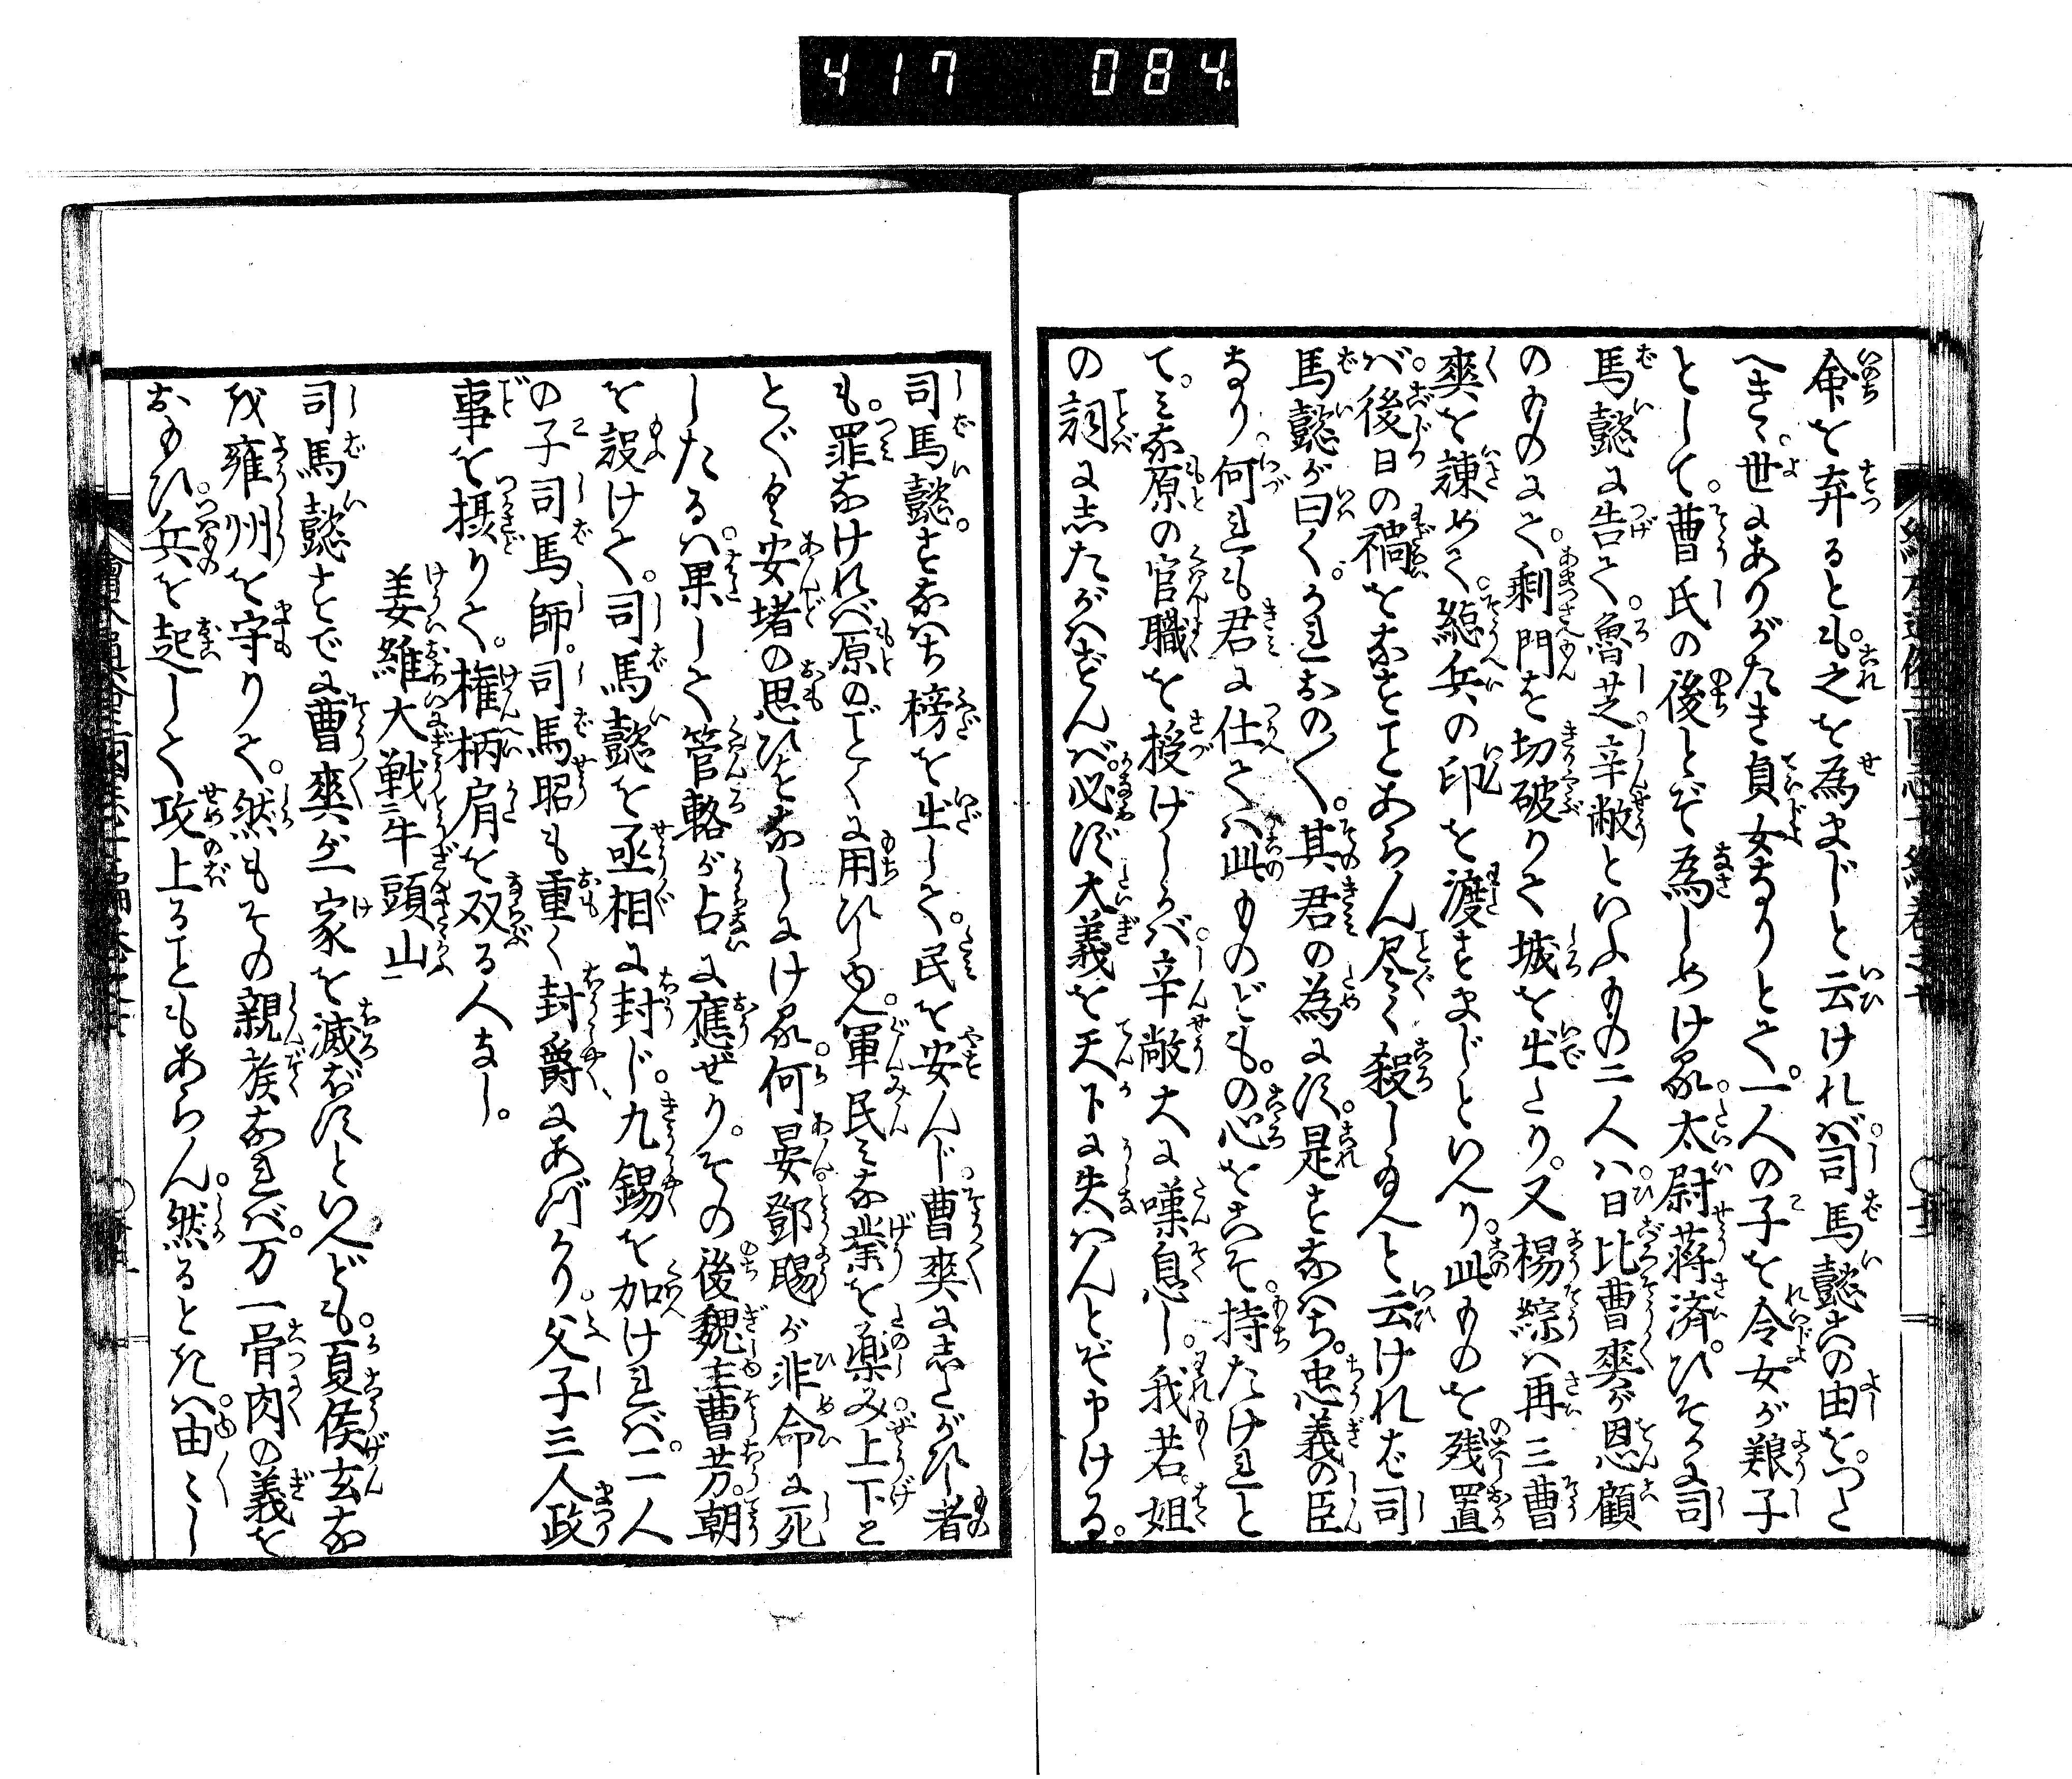 417 084
命を弃るとも。之を為まじと云けれバ。司馬懿此由を。つた
へきゝ。世にありがたき貞女なりとて。一人の子を令女が養子
として。曹氏の後とぞ為しめける。太尉蒋済。ひそかに司
馬懿に告て。魯芝。辛敞といふもの二人ハ。日比曹爽が恩顧
のものにて。剰門を切破りて城を出たり。又楊綜ハ再三曹
爽を諫めて。総兵の印を渡すまじといへり。此ものを残置
バ。後日の禍をなすことあらん。尽く殺し給へと云けれバ。司
馬懿が曰く。かれおの〱。其君の為にす。是すなハち。忠義の臣
なり。何れも君に仕てハ此ものども。の心をこそ。持たけれと
て。みな原の官職を授けしかバ。辛敞大に嘆息し。我若。姐
の詞にしたがハずんバ。必ず大義を天下に失ハんとぞ申ける。
司馬懿。すなハち榜を出して。民を安んじ。曹爽にしたがひし者
も。罪なけれバ。原のごとくに用ひしかバ。軍民みな業を楽み。上下こ
とごく安堵の思ひをなしにける。何晏鄧颺が非命に死
したるハ。果して管輅が占に應ぜり。その後魏主曹芳。朝
を設けて。司馬懿を丞相に封じ。九錫を加けれバ。二人
の子司馬師。司馬昭も重く封爵にあづかり。父子三人政
事を摂りて。権柄肩を双る人なし。
姜維大戦二牛頭山一
司馬懿すでに曹爽が一家を滅ぼすといへども。夏侯玄な
を雍州を守りて。然もその親族なれバ。万一骨肉の義を
おもひ。兵を起して攻上ることもあらん。然るときハ。由〱し